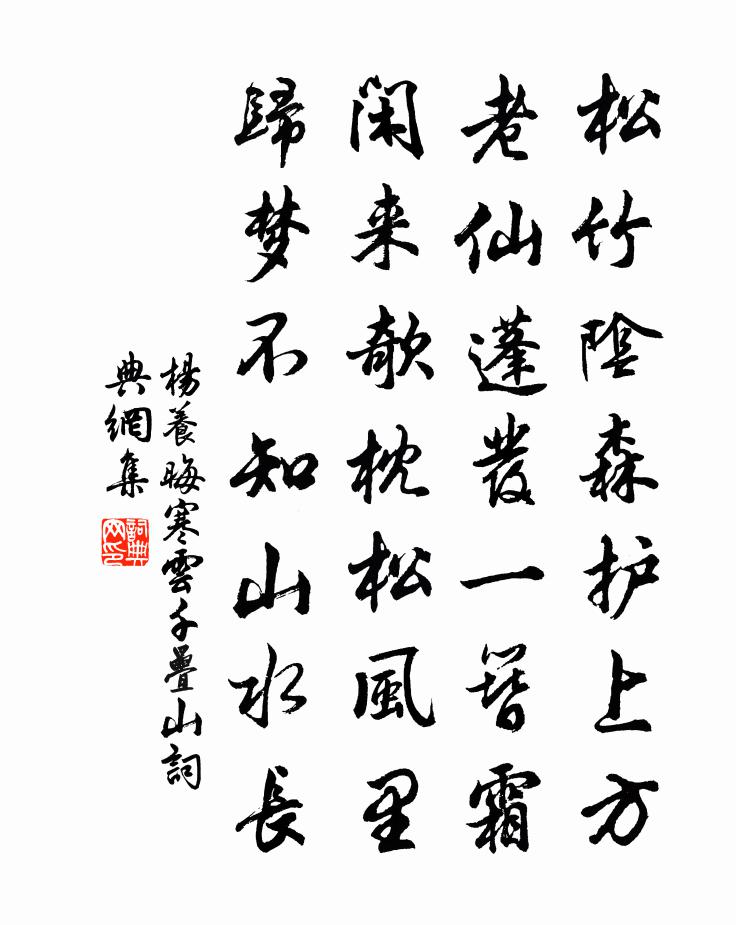 松竹陰森护上方
老仙蓬發一簪霜
闲来欹枕松風里
歸梦不知山水長
楊養晦寒雲千疊山詞
典網集
詞典網印